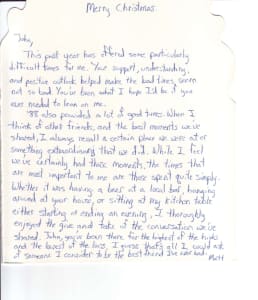 Merry Christmas
John,
This past year has offered some particularly
difficult times for me. Your support, understanding,
and positive outlook helped make the bad times seem
not so bad. You've been what I hope I'd be if you
ever needed to lean on me.
'88 also provided a lot of good times. When I
think of other friends, and the best moments we've
shared, I always recall a certain place we were at or
something extraordinary that we did. While I feel
we've certainly had those moments, the times that
are most important to me are those spent quite simply.
Whether it was having a beer at a local bar, hanging
around at your house, or sitting at my kitchen table
either starting or ending an evening, I thoroughly
enjoyed the give and take of the conversation we've
shared. John, you've been there for the highest of the highs
and the lowest of the lows, I guess that's all I could ask
of someone I consider to be the best friend I've ever had.
Matt